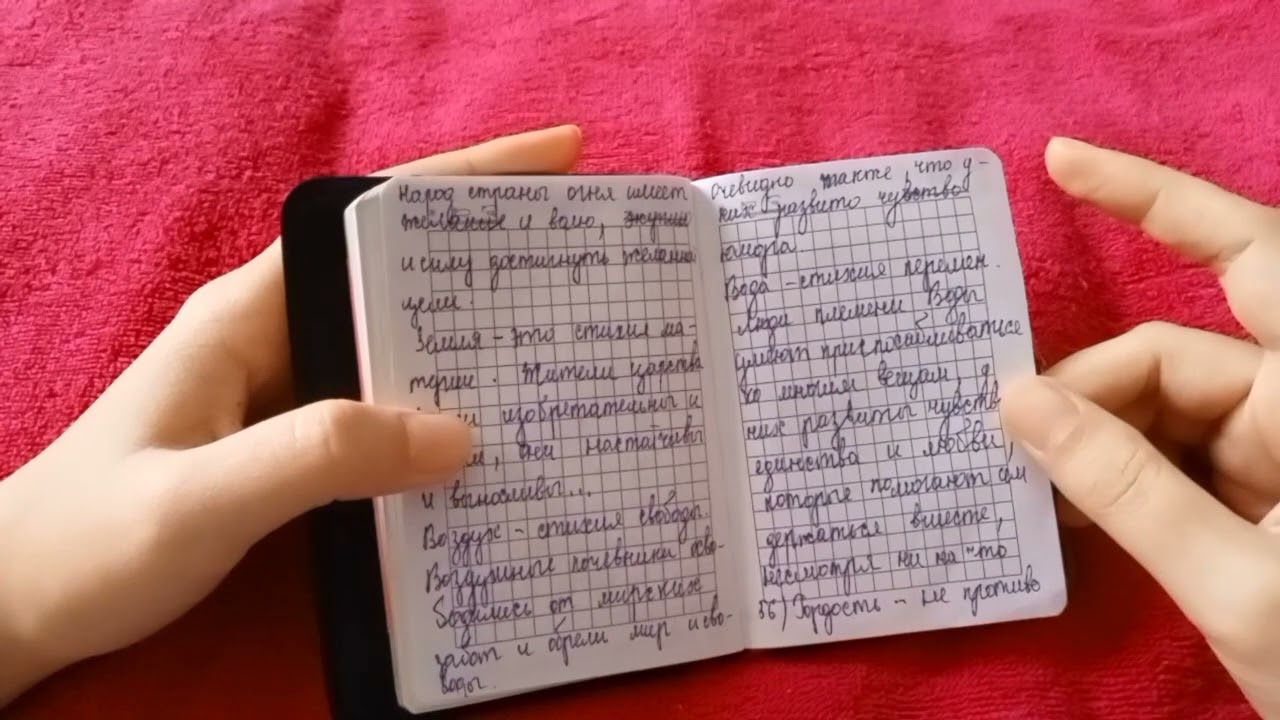 Народ страны огня имеет
желание и волю,
и силу достигнуть желанно
цели.
Земля - это стихия ма-
терии. Жители царства
изобретательны и
, они настойчивы
и выносливы...
Воздух - стихия свободы.
Воздушные кочевники осво-
бодились от мирских
забот и обрели мир и сво-
боды.
Очевидно также, что у -
них развито чувство
юмора.
Вода - стихия перемен.
Люди племени Воды
умеют приспосабливаться
ко многим вещам, у
них развиты чувств
единства и любви,
которые помогают им
держаться вместе,
несмотря ни на что
56) Гордость - не противо